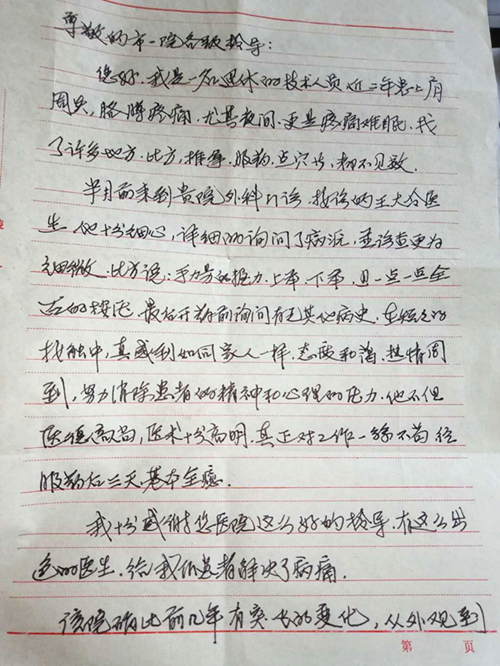 尊敬的市一院各级领导：
您好.我是一名退休的技术人员近二年患上肩
周炎，胳膊疼痛.尤其夜间.更是疼痛难眠.找
了许多地方.比方，推拿.服药.点穴等，都不见效.
半月前来到贵院外科门诊.接诊的王大令医
生.他十分细心，详细的询问了病况，查更为
细微.比方说：手力、上举、下举，且一点一点全
在的按.最后开药前询问有无其他病史.在短短的
接触中，真感到如同家人一样.态度和蔼.热情周
到，努力消除患者的精神和心理的压力.他不但
医德高尚，医术十分高明.真正对工作一丝不苟
服药后三天基本全瘾.
我十分感谢您医院这么好的领导.有这么出
色的医生.给我们患者解决了病痛.
该院确比前几年有突出的变化，从外观到
第 页